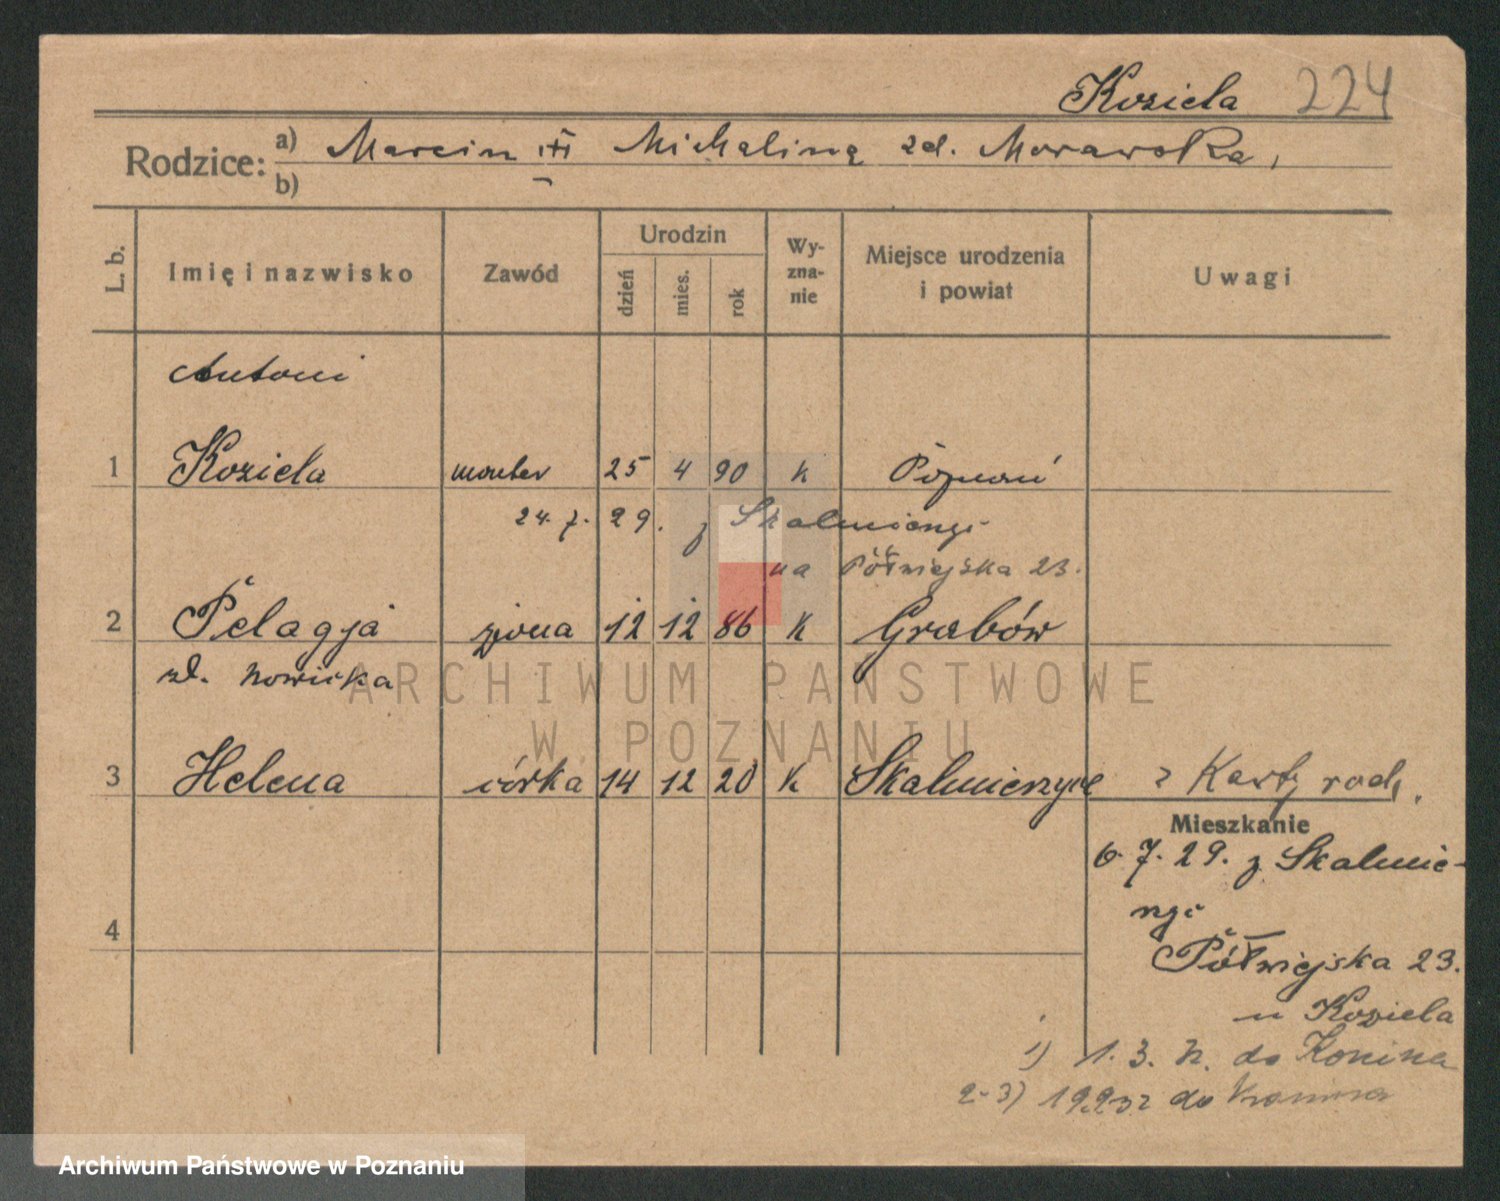 Koziela 224
Rodzice: a) Marcin i Michalina zd. Morawska,
b) –
L. b. Imię i nazwisko Zawód Urodzin dzień mies. rok Wyznanie Miejsce urodzenia i powiat Uwagi
Antoni
1 Koziela monter 25 4 90 k Poznań
24. 7. 29. z Skalmierzyc
na Półwiejska 23.
2 Pelagja żona 12 12 86 k Grabów
zd. Nowicka
ARCHIWUM PAŃSTWOWE
W POZNANIU
3 Helena córka 14 12 20 k Skalmierzyce z Karty rod.
Mieszkanie
6. 7. 29. z Skalmie-
rzyc
4
Półwiejska 23.
u Koziela
1) 1. 3. do Konina
2-3) do Konina
Archiwum Państwowe w Poznaniu